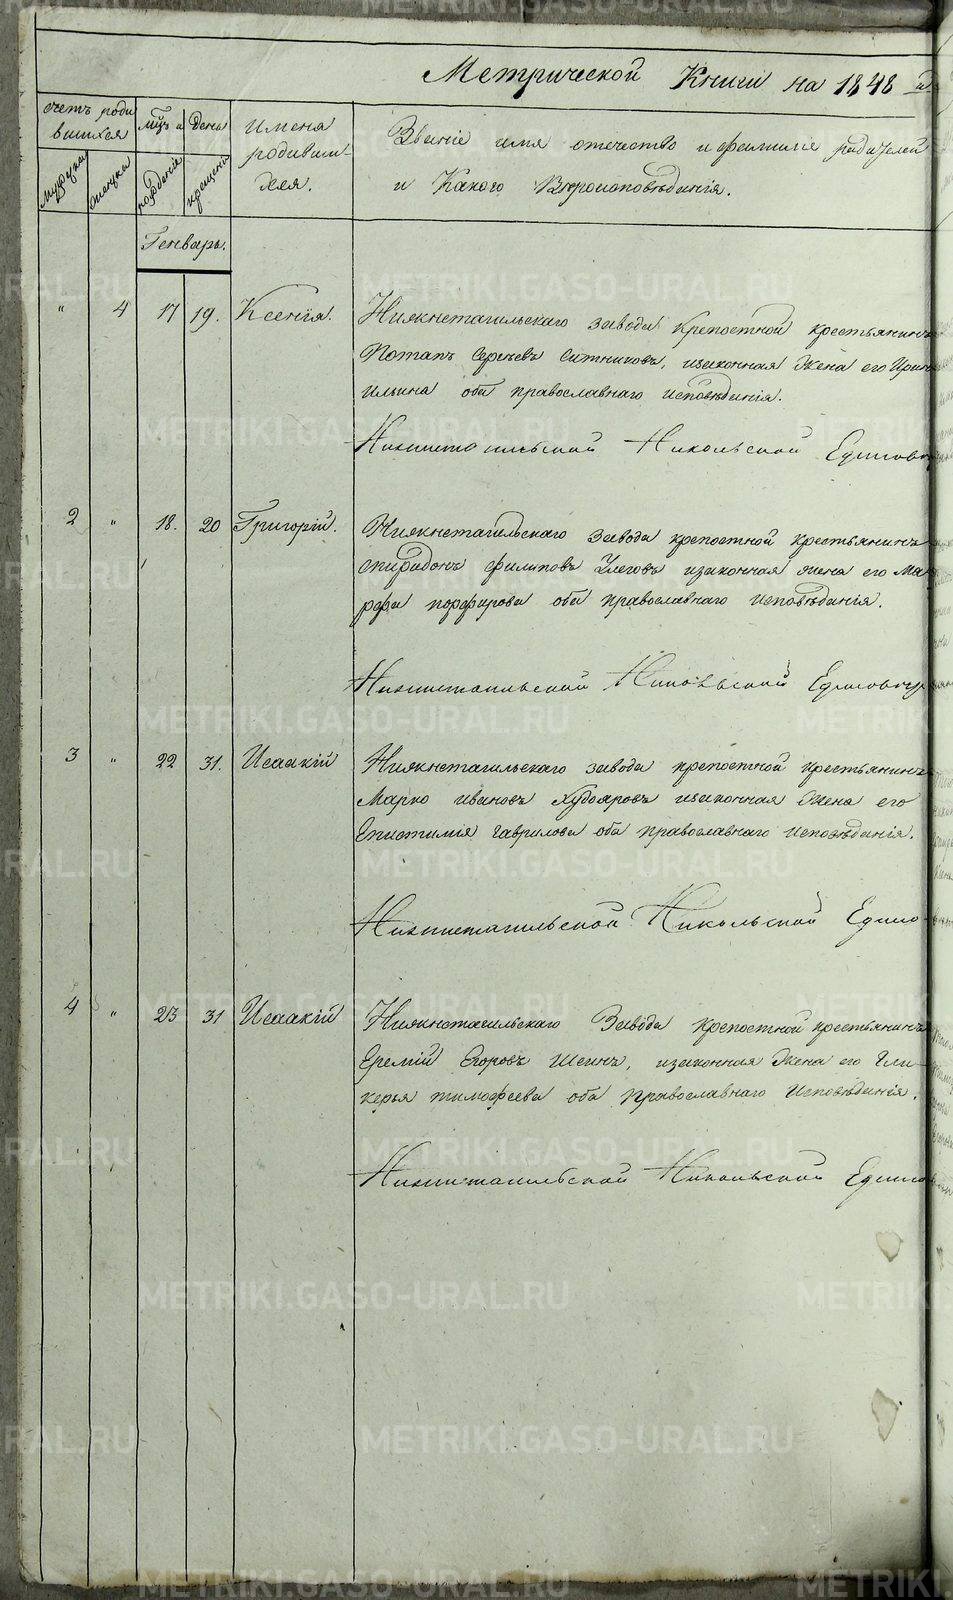 Метрической Книги на 1848 й
счетъ роди
вшихся
мужеска
женска
мцъ и День
рождение
крещени
Имена
родивши-
хся.
Звание имя отечество и фамилие родителей
и Какого Вероисповѣдания.
Генварь.
" 4 17 19. Ксения.
Нижнетагильскаго завода крепостной крестьянинъ
Потапъ Сергеевъ Ситниковъ, изаконная Жена его Ирин
ильина оба православнаго исповѣдания.
Нижнетагильской Никольской Единовер
2 " 18. 20 Григорій.
Нижнетагильскаго завода крепостной крестьянинъ
спиридонъ филиповъ изаконная жена его Ма
рфа порфирова оба православнаго исповѣдания.
Нижнетагильской Никольской Единовер
3 " 22 31. Исаакій
Нижнетагильскаго завода крепостной крестьянинъ
Марко ивановъ Худояровъ изаконная Жена его
Епистимия гаврилова оба православнаго исповѣдания.
Нижнетагильской Никольской Едино
4 " 23 31 Исаакій
Нижнетагильскаго Завода крепостной крестьянинъ
Еремій Егоровъ Шеинъ, изаконная Жена его Гли-
керья тимофеева оба православнаго Исповѣдания.
Нижнетагильской Никольской Единов
METRIKI.GASO-URAL.RU